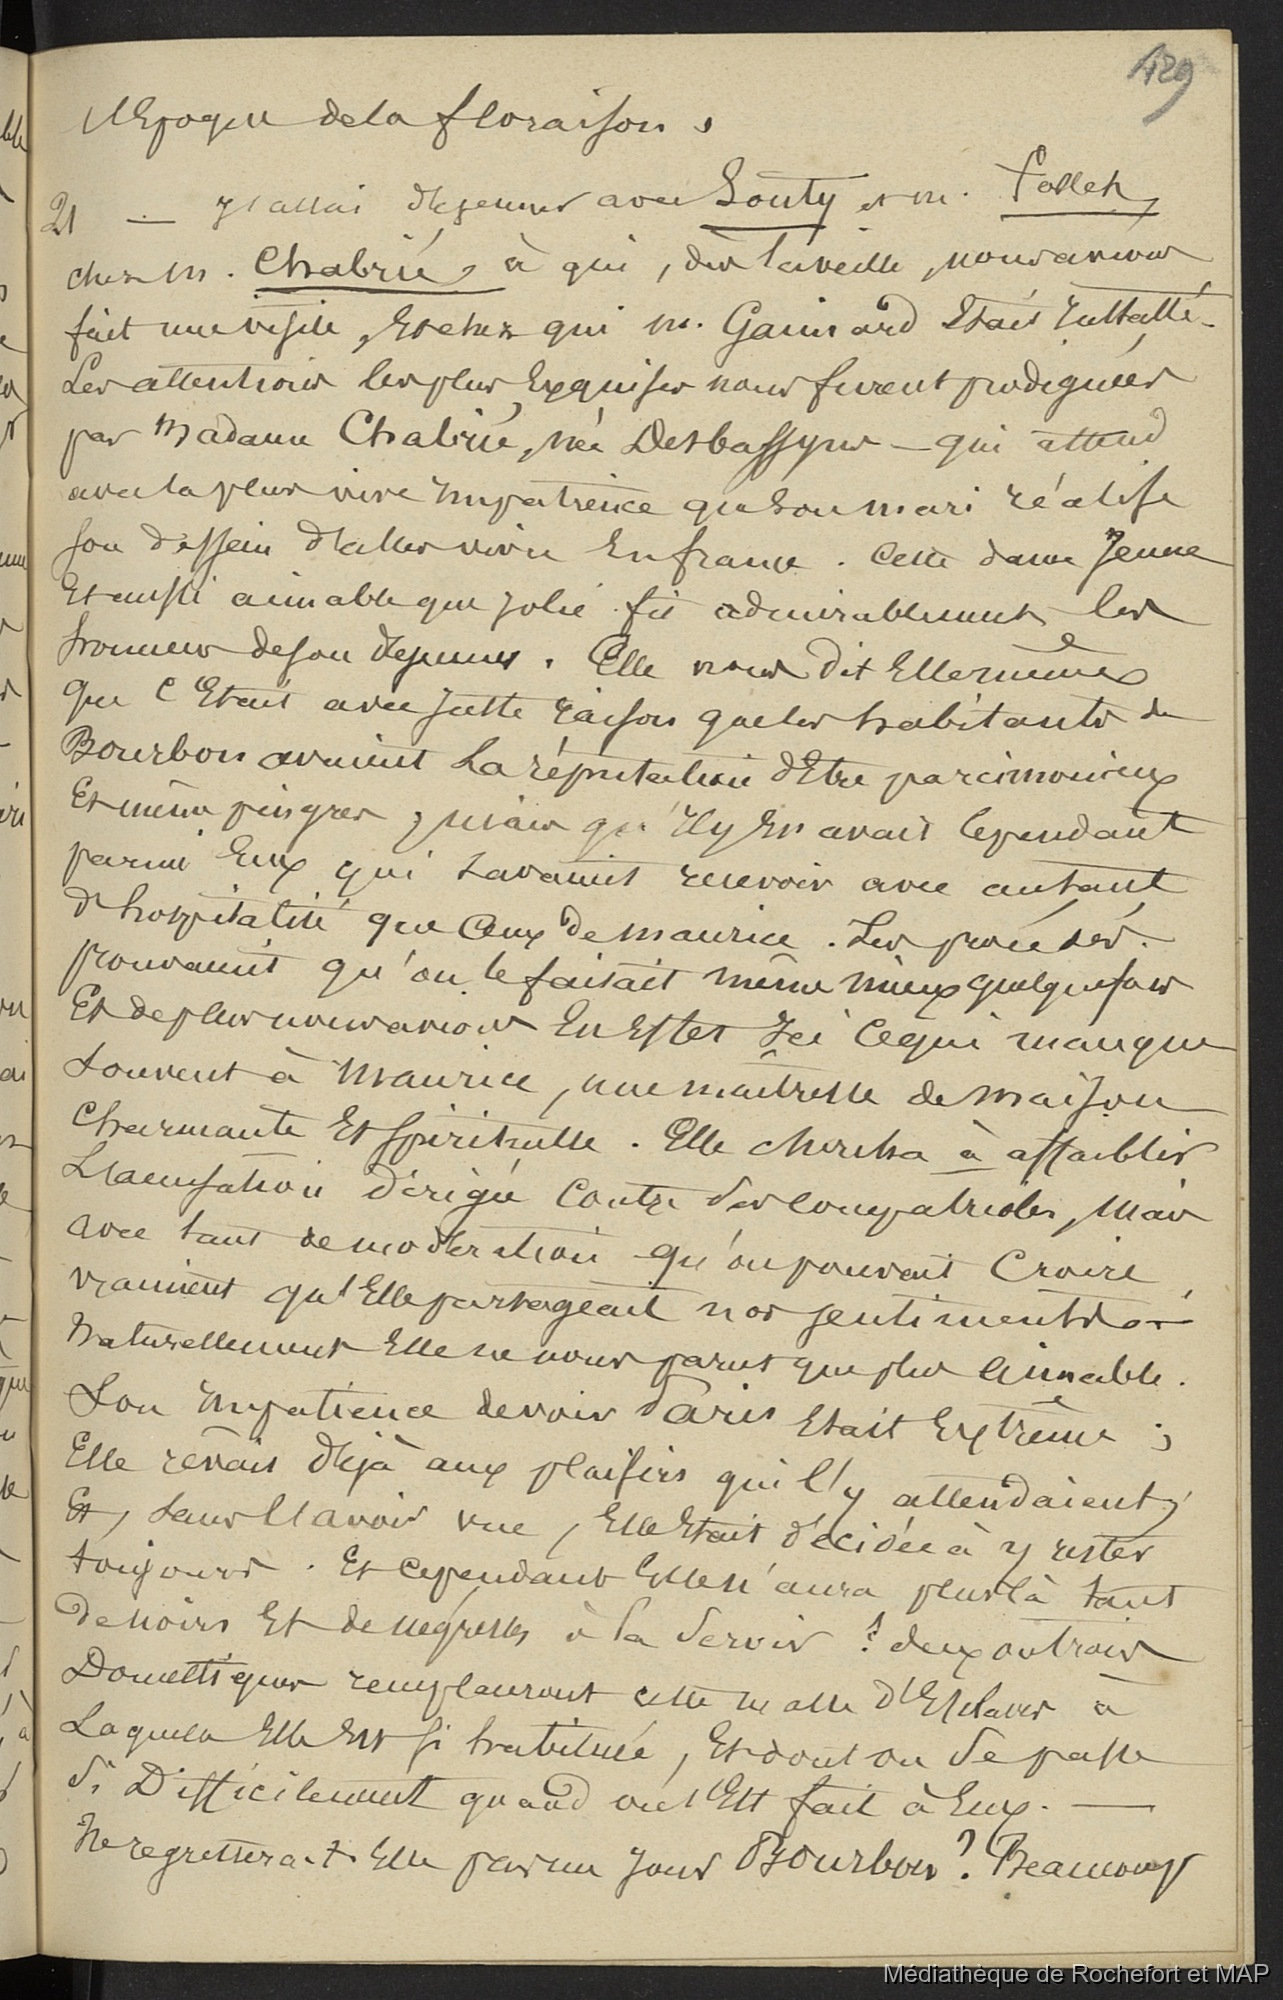 429
l'Epoque de la floraison.
21 — J'allai déjeuner avec Souty et M. Follet,
chez M. Chabrié, à qui, dès la veille, nous avions
fait une visite, Et chez qui M. Gaimard Etait Installé.
Les attentions les plus Exquises nous furent prodiguées
par Madame Chabrié, née Desbassyns — qui attend
avec la plus vive Impatience que son mari réalise
son dessein d'aller vivre En france. Cette dame Jeune
Et aussi aimable que jolie fit admirablement les
honneurs de son déjeuner. Elle nous dit Elle même
que C'Etait avec juste raison que les habitants de
Bourbon avaient La réputation d'Etre parcimonieux
Et même pingres, mais qu'Il y En avait Cependant
parmi Eux qui savaient recevoir avec autant
d'hospitalité que Ceux de Maurice. Les procédés
prouvaient qu'on le faisait même mieux quelquefois
Et de plus nous avions En Effet Ici Ce qui manque
souvent à Maurice, une maîtresse de maison
Charmante Et spirituelle. Elle chercha à affaiblir
L'accusation dirigée Contre ses compatriotes, Mais
avec tant de modération qu'on pouvait Croire
vraiment qu'Elle partageait nos sentiments —
Naturellement Elle ne nous parut que plus Aimable.
Son Impatience de voir Paris Etait Extrême ;
Elle rêvait déjà aux plaisirs qui l'y attendaient,
Et, sans l'avoir vue, Elle Etait décidée à y rester
toujours. Et cependant Elle n'aura plus là tant
de noirs Et de négresses à la servir ! deux ou trois
Domestiques remplaceront cette masse d'Esclaves à
Laquelle Elle Est si habituée, Et dont on se passe
si Difficilement quand on s'Est fait à Eux. —
Ne regrettera-t-Elle pas un jour Bourbon ? Beaucoup
Médiathèque de Rochefort et MAP